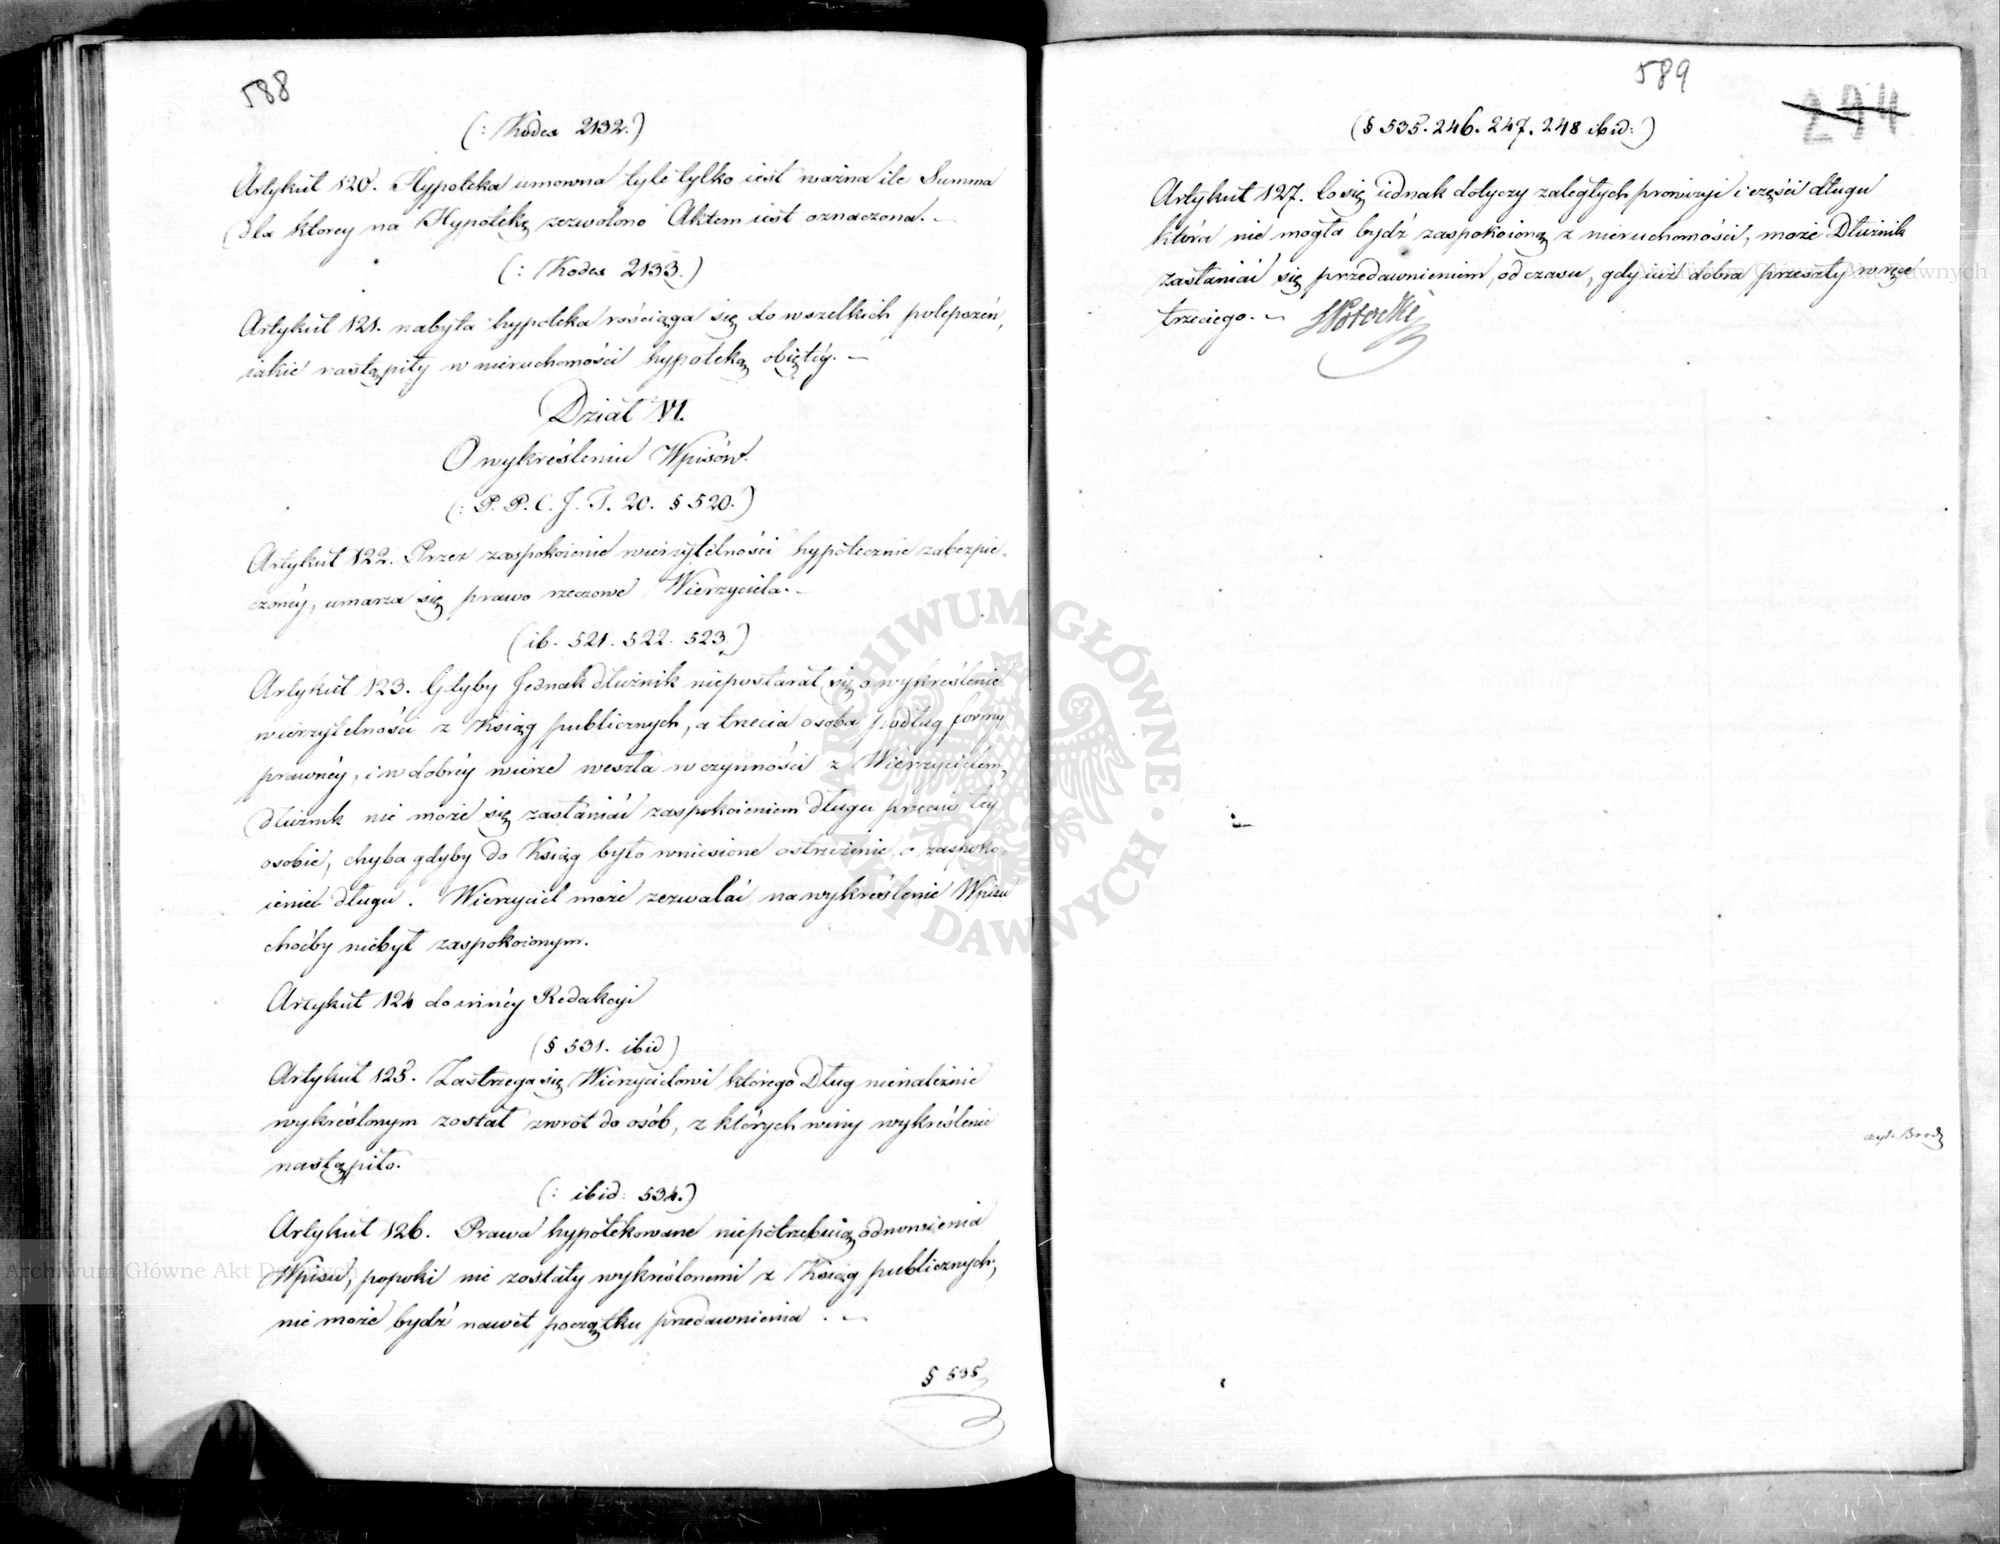 588
(: Kodex 2132.)
Artykuł 120. Hypoteka umowna tyle tylko iest ważna ile Summa
dla ktorey na Hypotekę zezwolono Aktem iest oznaczona. –
(: Kodex 2133.)
Artykuł 121. nabyta hypoteka rościąga się do wszelkich polepszeń,
iakie nastąpiły w nieruchomości hypoteką obiętéy. –
Dział VI.
O wykreśleniu Wpisów.
(: P. P. C. J. T. 20. § 520.)
Artykuł 122. Przez zaspokoienie wierzytelności hypotecznie zabezpie-
czonéy, umarza się prawo rzeczowe Wierzyciela. –
(ib. 521. 522. 523.)
Artykuł 123. Gdyby Jednak dłużnik niepostarał się o wykreślenie
wierzytelności z Xsiąg publicznych, a trzecia osoba podług formy
prawnéy, i w dobréy wierze weszła w czynności z Wierzycielem,
dłużnik nie może się zasłaniać zaspokoieniem długu przeciw téy
osobie, chyba gdyby do Xsiąg było wniesione ostrzeżenie, o zaspoko-
ieniu długu. Wierzyciel może zezwalać na wykreślenie Wpisu
choćby niebył zaspokoionym.
Artykuł 124 do innéy Redakcyi
(§ 531. ibid)
Artykuł 125. Zastrzega się Wierzycielowi którego Dług nienależnie
wykreślonym został zwrót do osób, z których winy wykreślenie
nastąpiło.
(: ibid: 534.)
Artykuł 126. Prawa hypotekowane niepotrzebuią odnowienia
Wpisu, popoki nie zostały wykreślonemi z Xsiąg publicznych,
nie może bydź nawet początku przedawnienia. –
§ 535
589
244
(§ 535. 246. 247. 248 ibid:)
Artykuł 127. Co się iednak dotyczy zaległych prowizyi i części długu
która nie mogła bydź zaspokoioną z nieruchomości, może Dłużnik
zasłaniać się przedawnieniem, od czasu, gdy iuż dobra przeszły w ręce
trzeciego. – Potocki
czyt. Brodz
ARCHIWUM GŁÓWNE AKT DAWNYCH
Archiwum Główne Akt Dawnych
Archiwum Główne Akt Dawnych